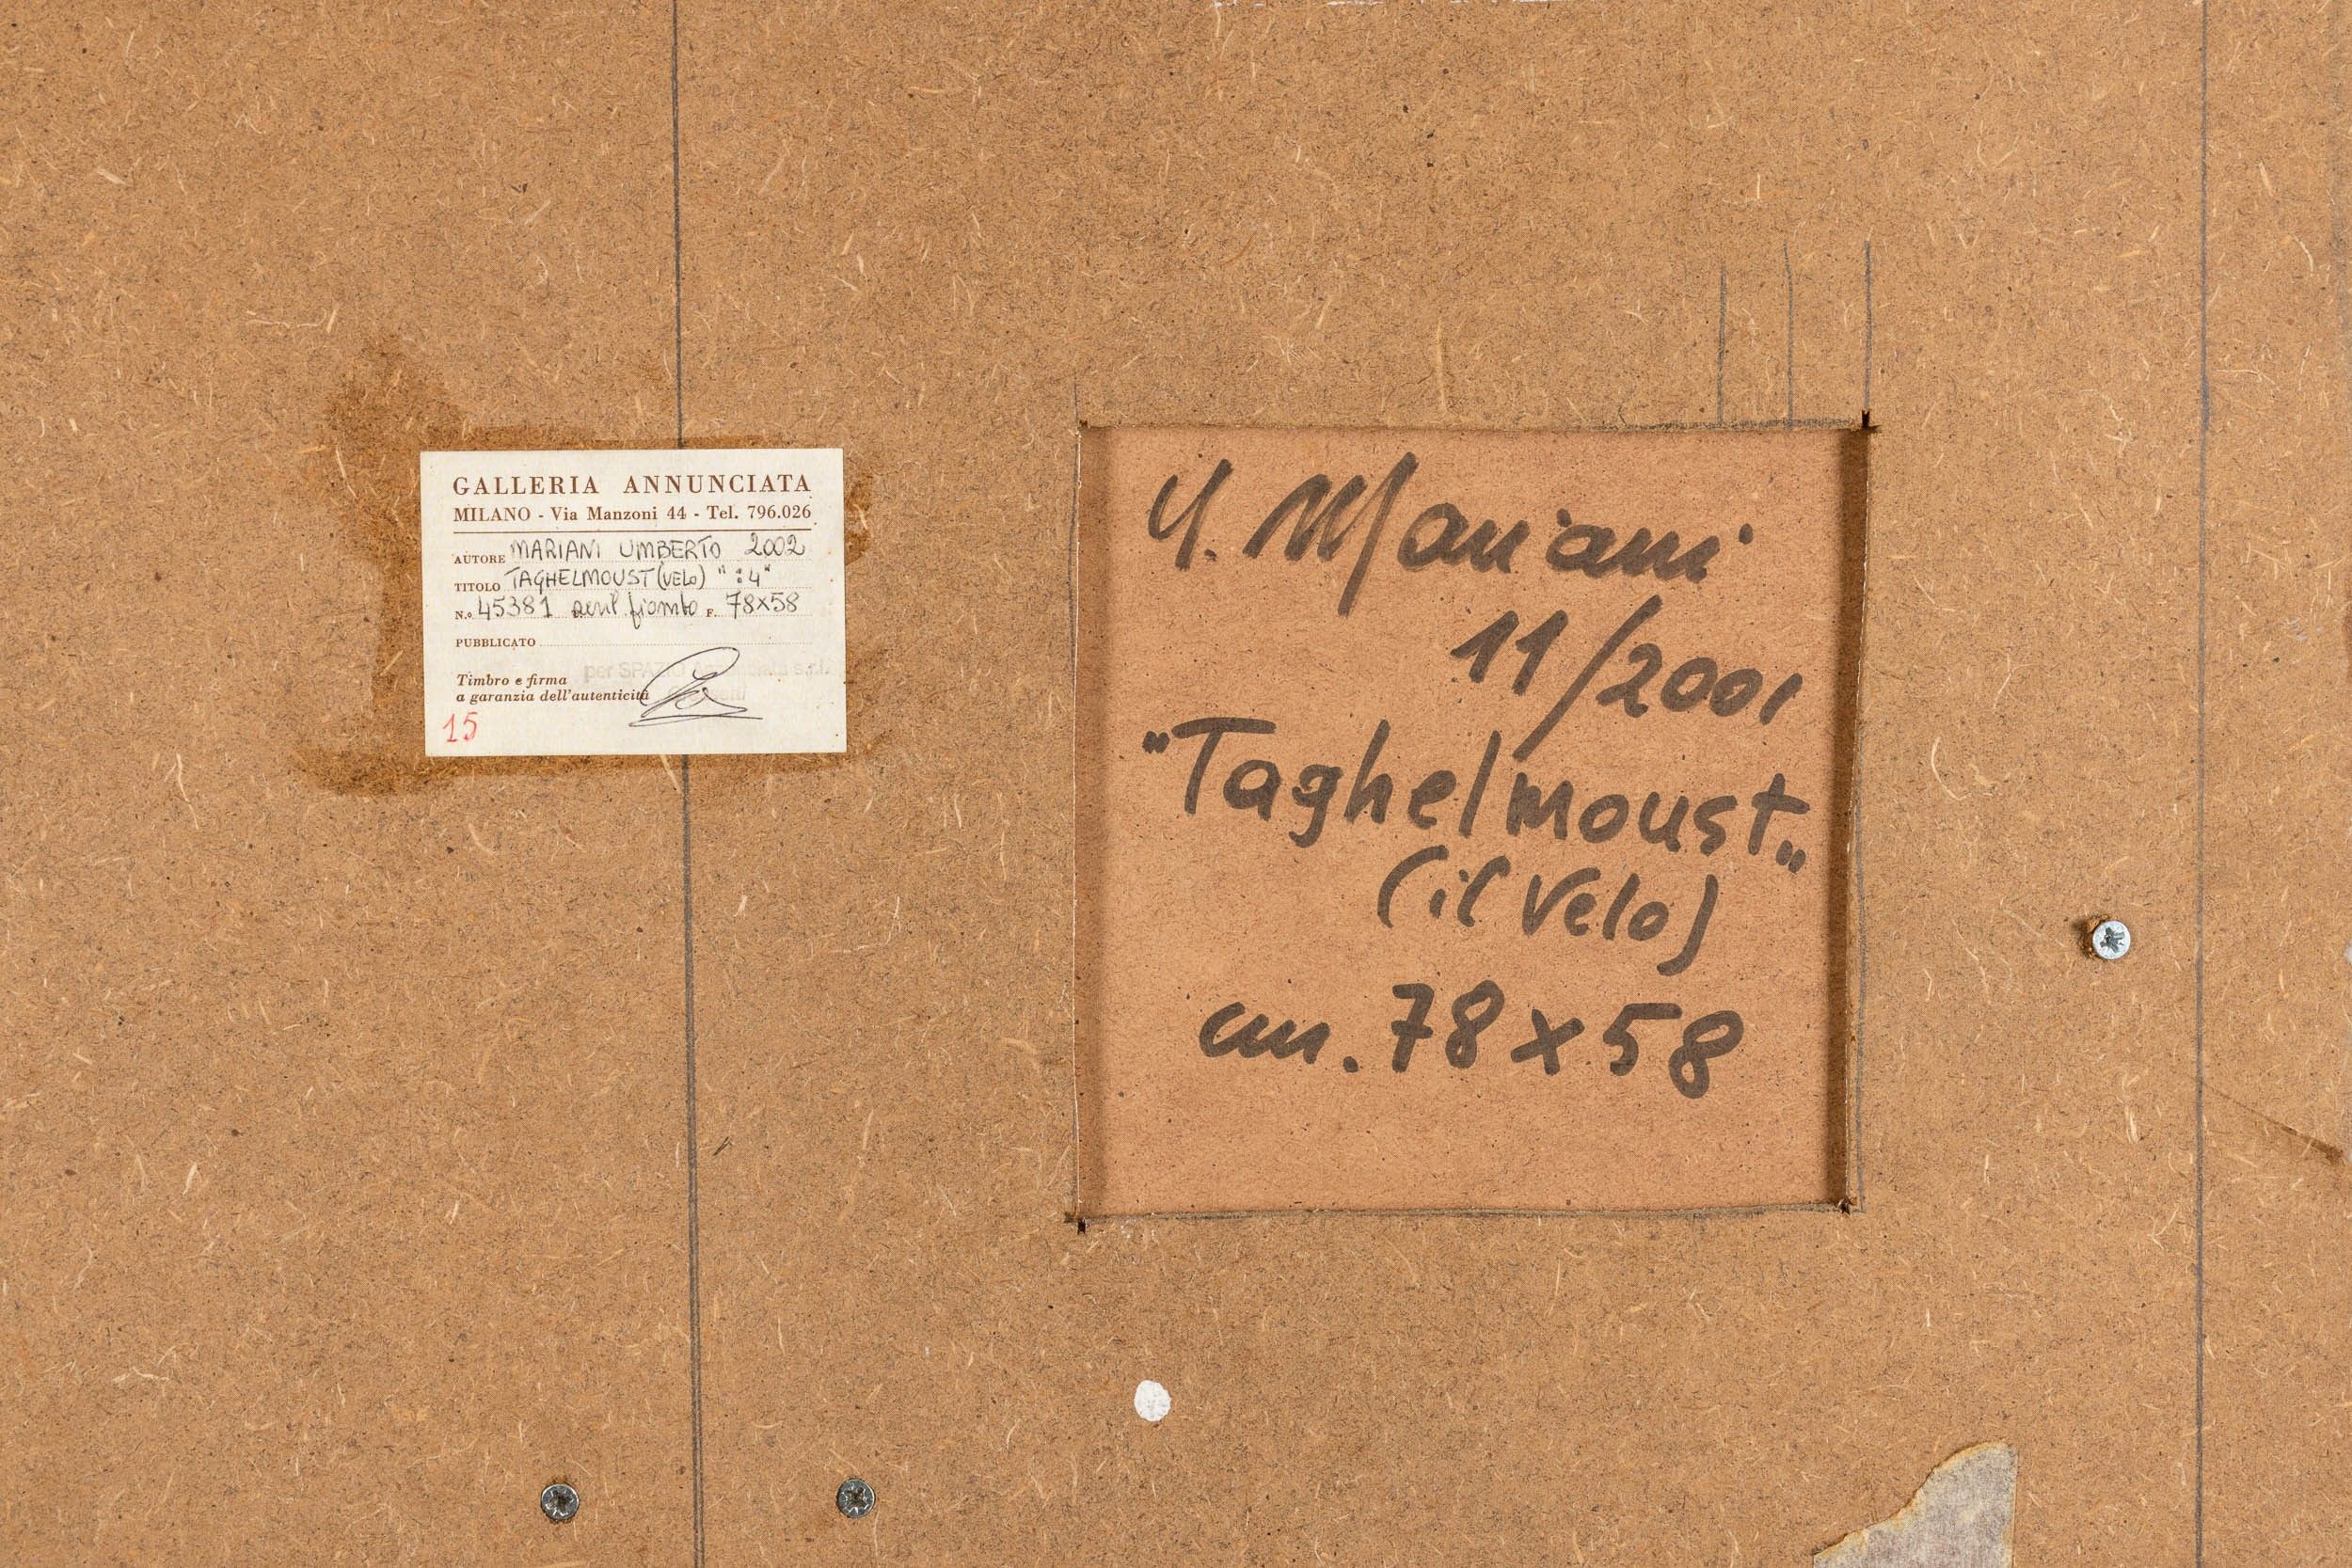 GALLERIA ANNUNCIATA
MILANO - Via Manzoni 44 - Tel. 796.026
AUTORE MARIANI UMBERTO 2002
TITOLO TAGHELMOUST (VELO) " :4"
N.o 45381 acril. piombo F. 78x58
PUBBLICATO
per SPAZIO Annunciata s.r.l.
Timbro e firma
a garanzia dell'autenticità
15
U. Mariani
11/2001
"Taghelmoust„
(il Velo)
cm. 78x58